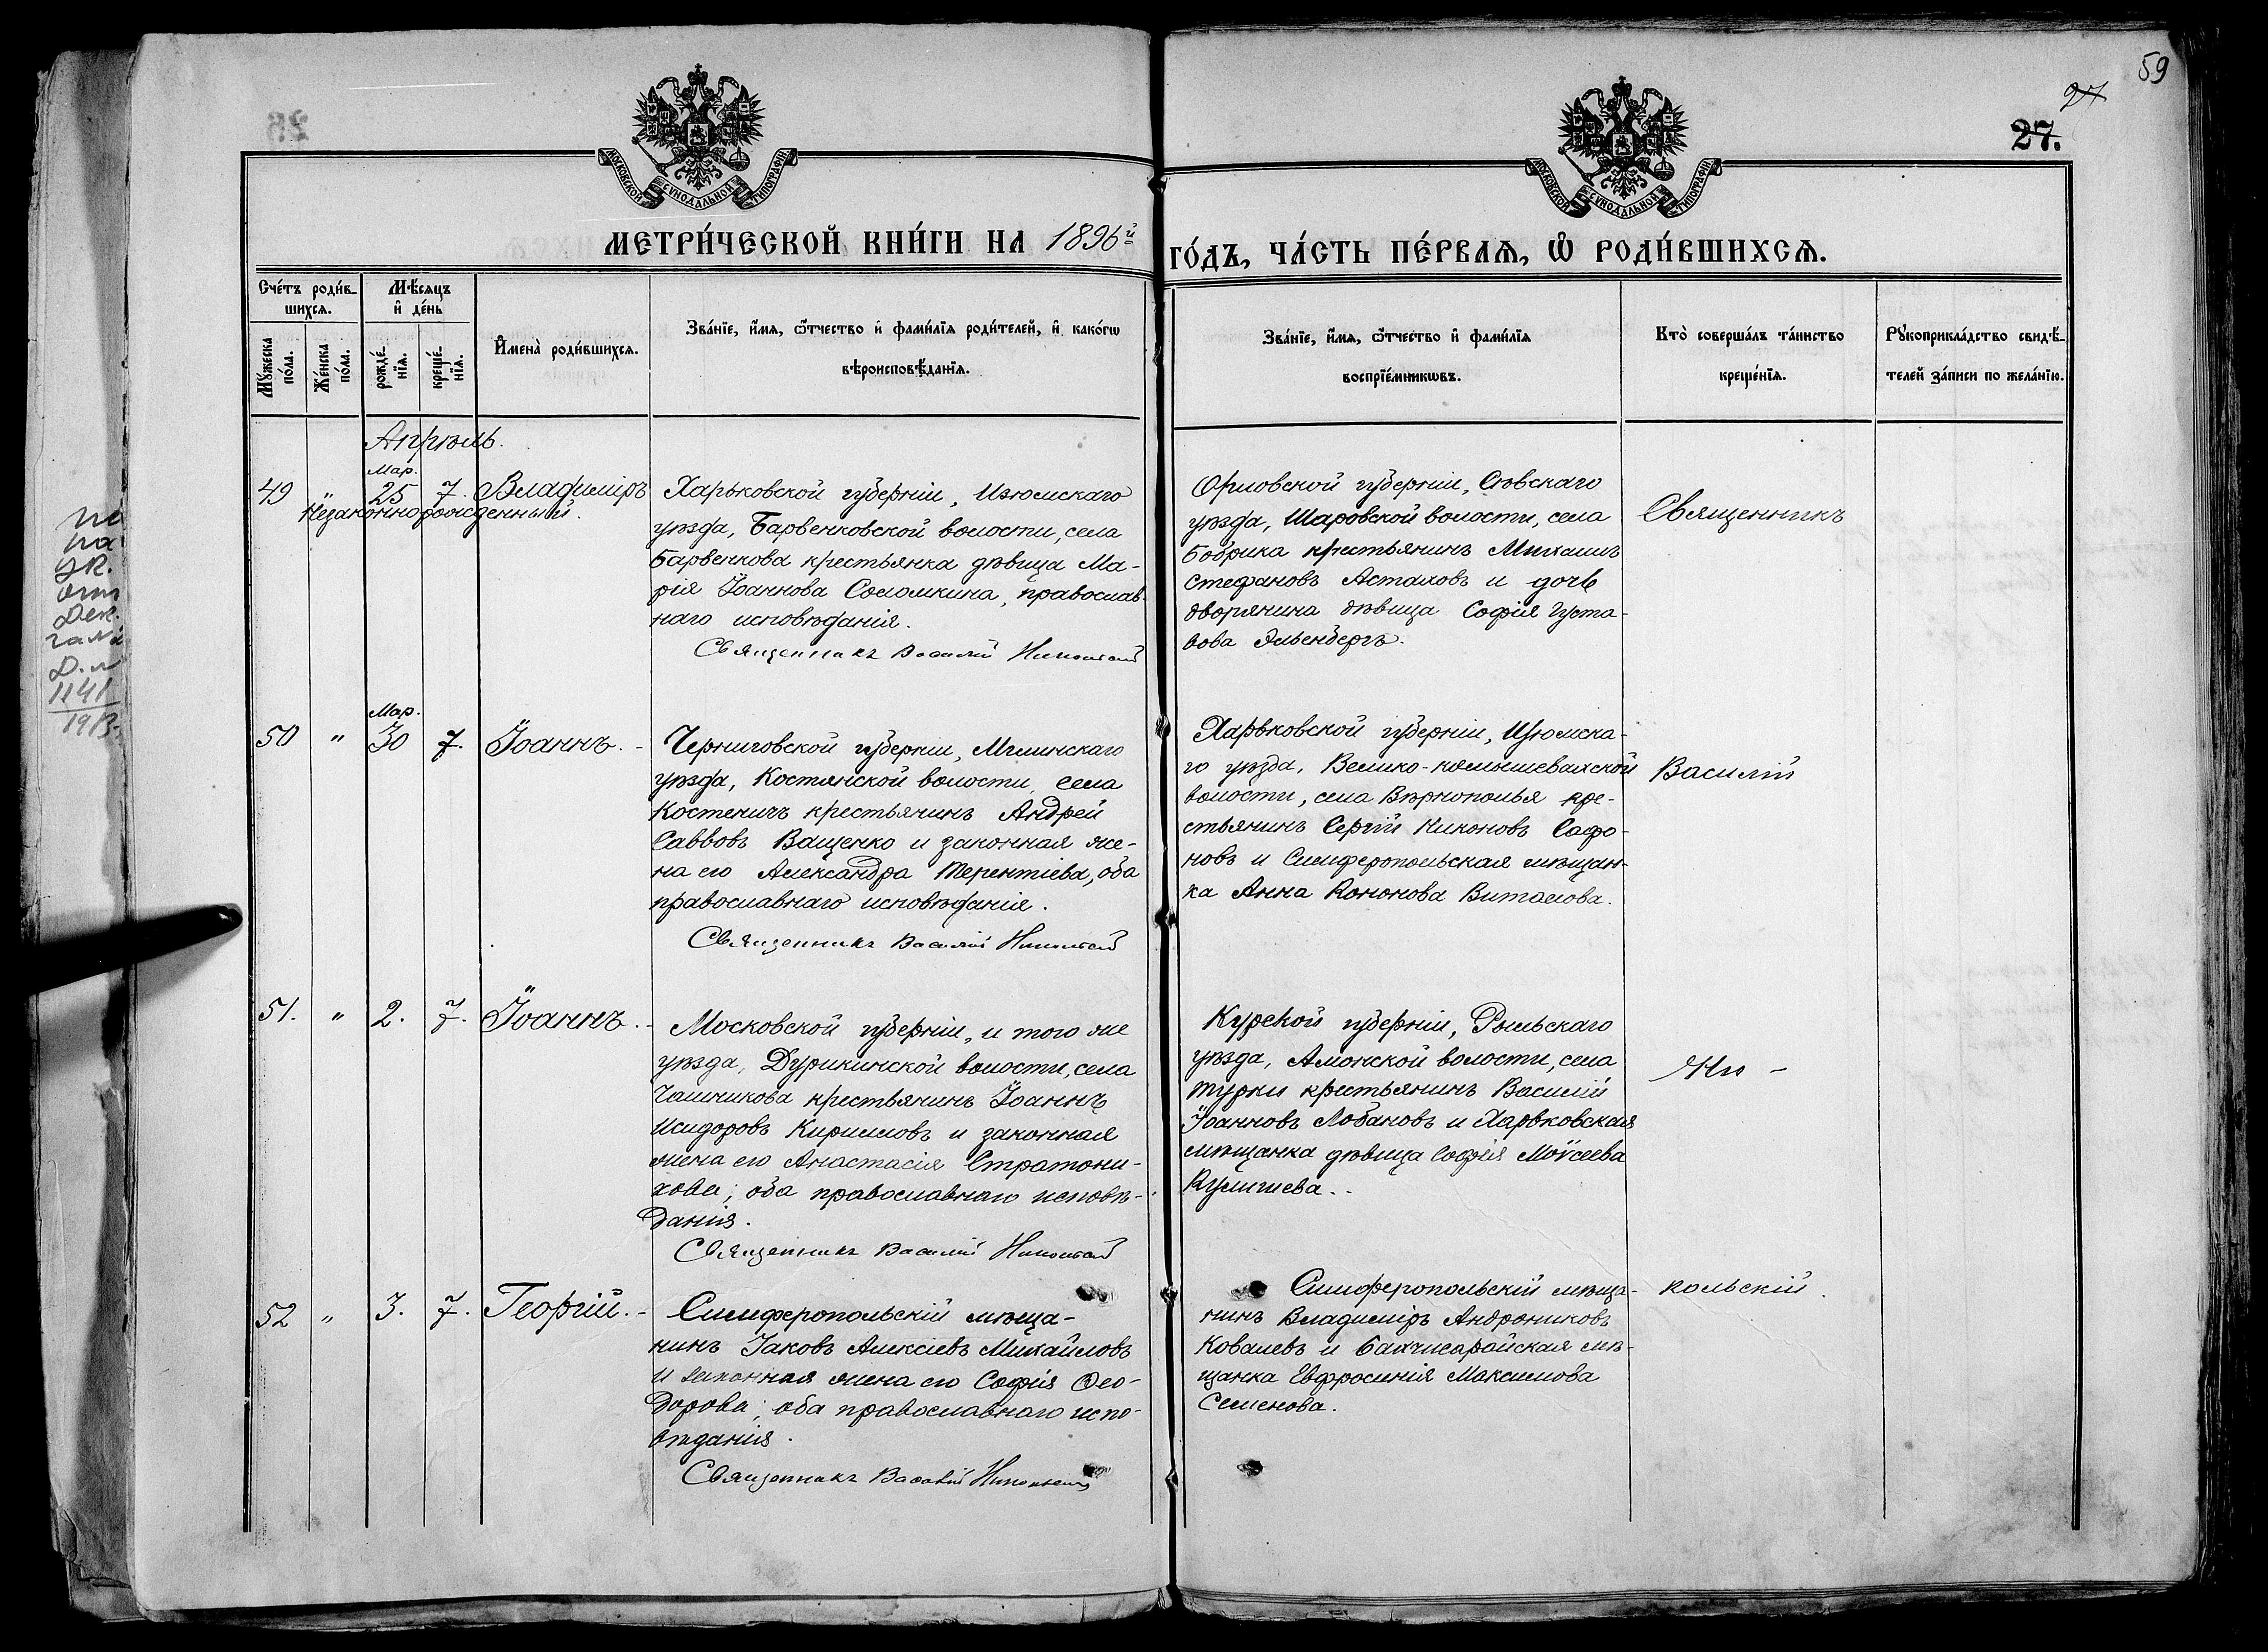 59
27
27.
МОСКОВСКОЙ СѴНОДАЛЬНОЙ ТИПОГРАФІИ
МОСКОВСКОЙ СѴНОДАЛЬНОЙ ТИПОГРАФІИ
МЕТРИ́ЧЕСКОЙ КНИ́ГИ НА 1896й
ГО́ДЪ, ЧА́СТЬ ПЕ́РВАѦ, Ѡ҆ РОДИ́ВШИХСѦ.
Сче́тъ роди́в-
шихсѧ.
Мѣ́сѧцъ
и҆ де́нь
Мꙋ́жеска
по́ла.
Же́нска
по́ла.
рожде́-
нїѧ.
креще́-
нїѧ.
И҆мена̀ роди́вшихсѧ.
Зва́нїе, и҆́мѧ, ѻ҆́тчество и҆ фами́лїѧ роди́телей, и҆ како́гѡ
вѣроисповѣ́данїѧ.
Зва́нїе, и҆́мѧ, ѻ҆́тчество и҆ фами́лїѧ
воспрїе́мникѡвъ.
Кто̀ соверша́лъ та́инство
креще́нїѧ.
Рꙋкоприкла́дство свидѣ́-
телей за́писи по жела́нїю.
Апрѣль.
Мар.
49 25 7. Владиміръ
Незаконнорожденный.
Харьковской губерніи, Изюмскаго
уѣзда, Барвенковской волости, села
Барвенкова крестьянка дѣвица Ма-
рія Іоаннова Соломкина, православ-
наго исповѣданія.
Священникъ Василій Никольскій
Орловской губерніи, Сѣвскаго
уѣзда, Шаровской волости, села
Бобрика крестьянинъ Михаилъ
Стефановъ Астаховъ и дочь
дворянина дѣвица Софія Густа-
вова Эльенбергъ.
Священникъ
Мар.
50 " 30 7. Іоаннъ.
Черниговской губерніи, Мглинскаго
уѣзда, Костянской волости, села
Костеничъ крестьянинъ Андрей
Саввовъ Ващенко и законная же-
на его Александра Терентіева, оба
православнаго исповѣданія.
Священникъ Василій Никольскій
Харьковской губерніи, Изюмска-
го уѣзда, Велико-камышевахской
волости, села Вѣрнополья кре-
стьянинъ Сергій Никоновъ Сафо-
новъ и Симферопольская мѣщан-
ка Анна Кононова Виталова.
Василій
51. " 2. 7. Іоаннъ.
Московской губерніи, и того же
уѣзда, Дурикинской волости, села
Чашникова крестьянинъ Іоаннъ
Исидоровъ Кирилловъ и законная
жена его Анастасія Стратони-
кова; оба православнаго исповѣ-
данія.
Священникъ Василій Никольскій
Курской губерніи, Рыльскаго
уѣзда, Амонской волости, села
Турки крестьянинъ Василій
Іоанновъ Лобановъ и Харьковская
мѣщанка дѣвица Софія Моѵсеева
Куличева.
Ни-
52 " 3. 7. Георгій.
Симферопольскій мѣща-
нинъ Іаковъ Алексіевъ Михайловъ
и законная жена его Софія Ѳео-
дорова; оба православнаго испо-
вѣданія.
Священникъ Василій Никольскій
Симферопольскій мѣща-
нинъ Владиміръ Андрониковъ
Ковалевъ и Бахчисарайская мѣ-
щанка Евфросинія Максимова
Семенова.
кольскій.
1141
1913